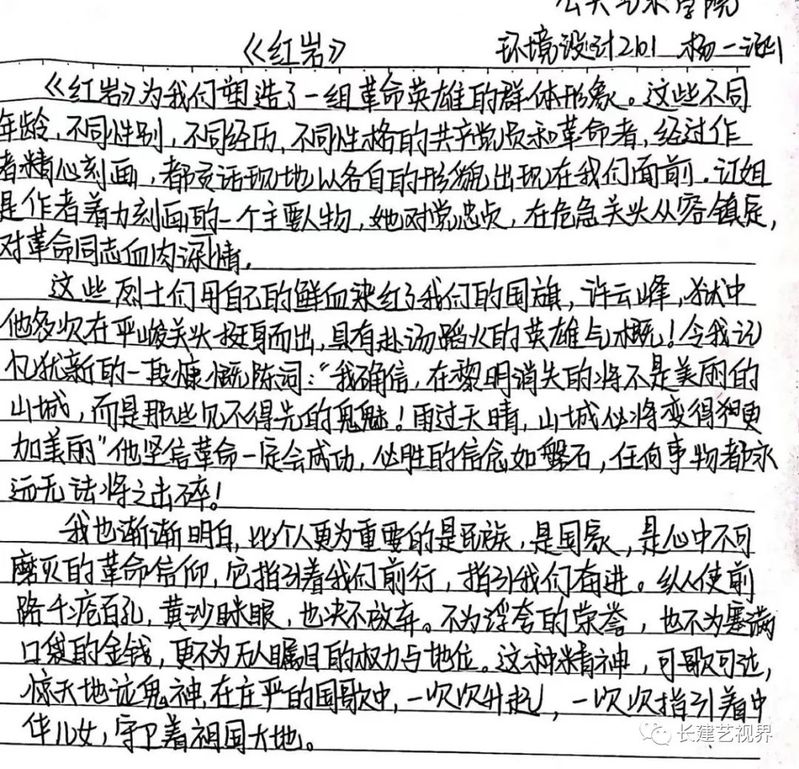 公共艺术学院
《红岩》 环境设计2101 杨一
《红岩》为我们塑造了一组革命英雄的群体形象。这些不同
年龄,不同性别,不同经历,不同性格的共产党员和革命者,经过作
者精心刻画,都灵活现地以各自的形貌出现在我们面前。江姐
是作者着力刻画的一个主要人物,她对党忠贞,在危急关头从容镇定,
对革命同志血肉深情。
这些烈士们用自己的鲜血染红了我们的国旗,许云峰,狱中
他多次在严峻关头挺身而出,具有赴汤蹈火的英雄气概!令我记
忆犹新的一段慷慨陈词:“我确信,在黎明消失的将不是美丽的
山城,而是那些见不得光的鬼魅!雨过天晴,山城必将变得更
加美丽”他坚信革命一定会成功,必胜的信念如磐石,任何事物都永
远无法将之击碎!
我也渐渐明白,比个人更为重要的是民族,是国家,是心中不可
磨灭的革命信仰,它指引着我们前行,指引我们奋进。纵使前
路千疮百孔,黄沙眯眼,也决不放弃。不为浮夸的荣誉,也不为塞满
口袋的金钱,更不为万人瞩目的权力与地位。这种精神,可歌可泣,
惊天地泣鬼神,在庄严的国歌中,一次次升起,一次次指引着中
华儿女,守卫着祖国大地。
长建艺视界